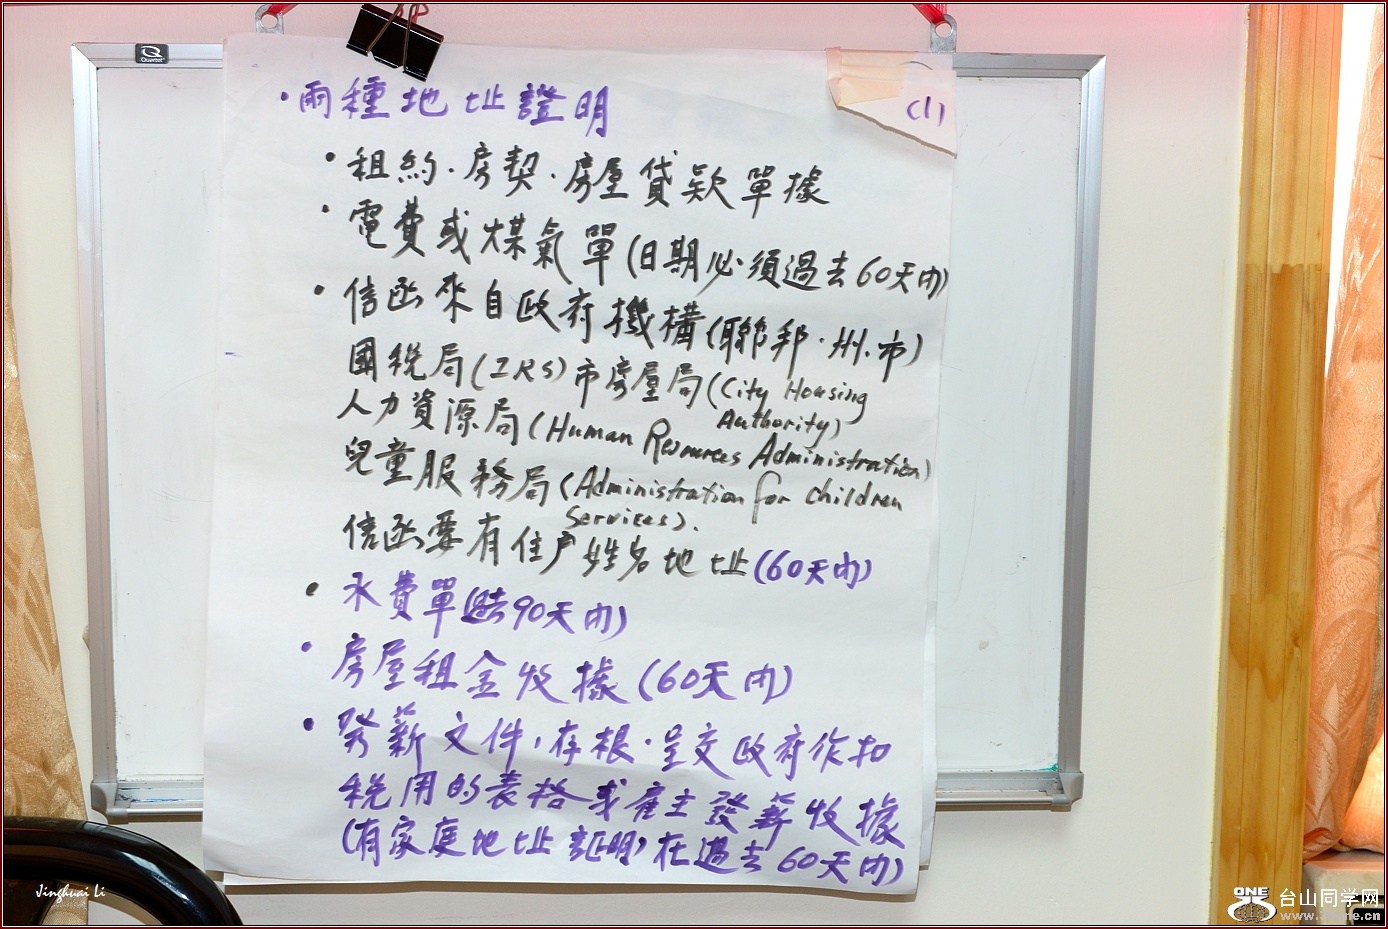 Quartet
(1)
·兩種地址證明
·租約·房契·房屋貸款單據
·電費或煤氣單(日期必須過去60天内)
·信函來自政府機構(聯邦·州·市)
國稅局(IRS)市房屋局(City Housing
Authority)
人力資源局(Human Resources Administration)
兒童服務局(Administration for children
Services).
信函要有住户姓名地址(60天内)
·水費單(過去90天内)
·房屋租金收據(60天内)
·發薪文件,存根·呈交政府作扣
稅用的表格或雇主發薪收據
(有家庭地址証明)在過去60天内)
Jinghuai Li
ONE 台山同学网